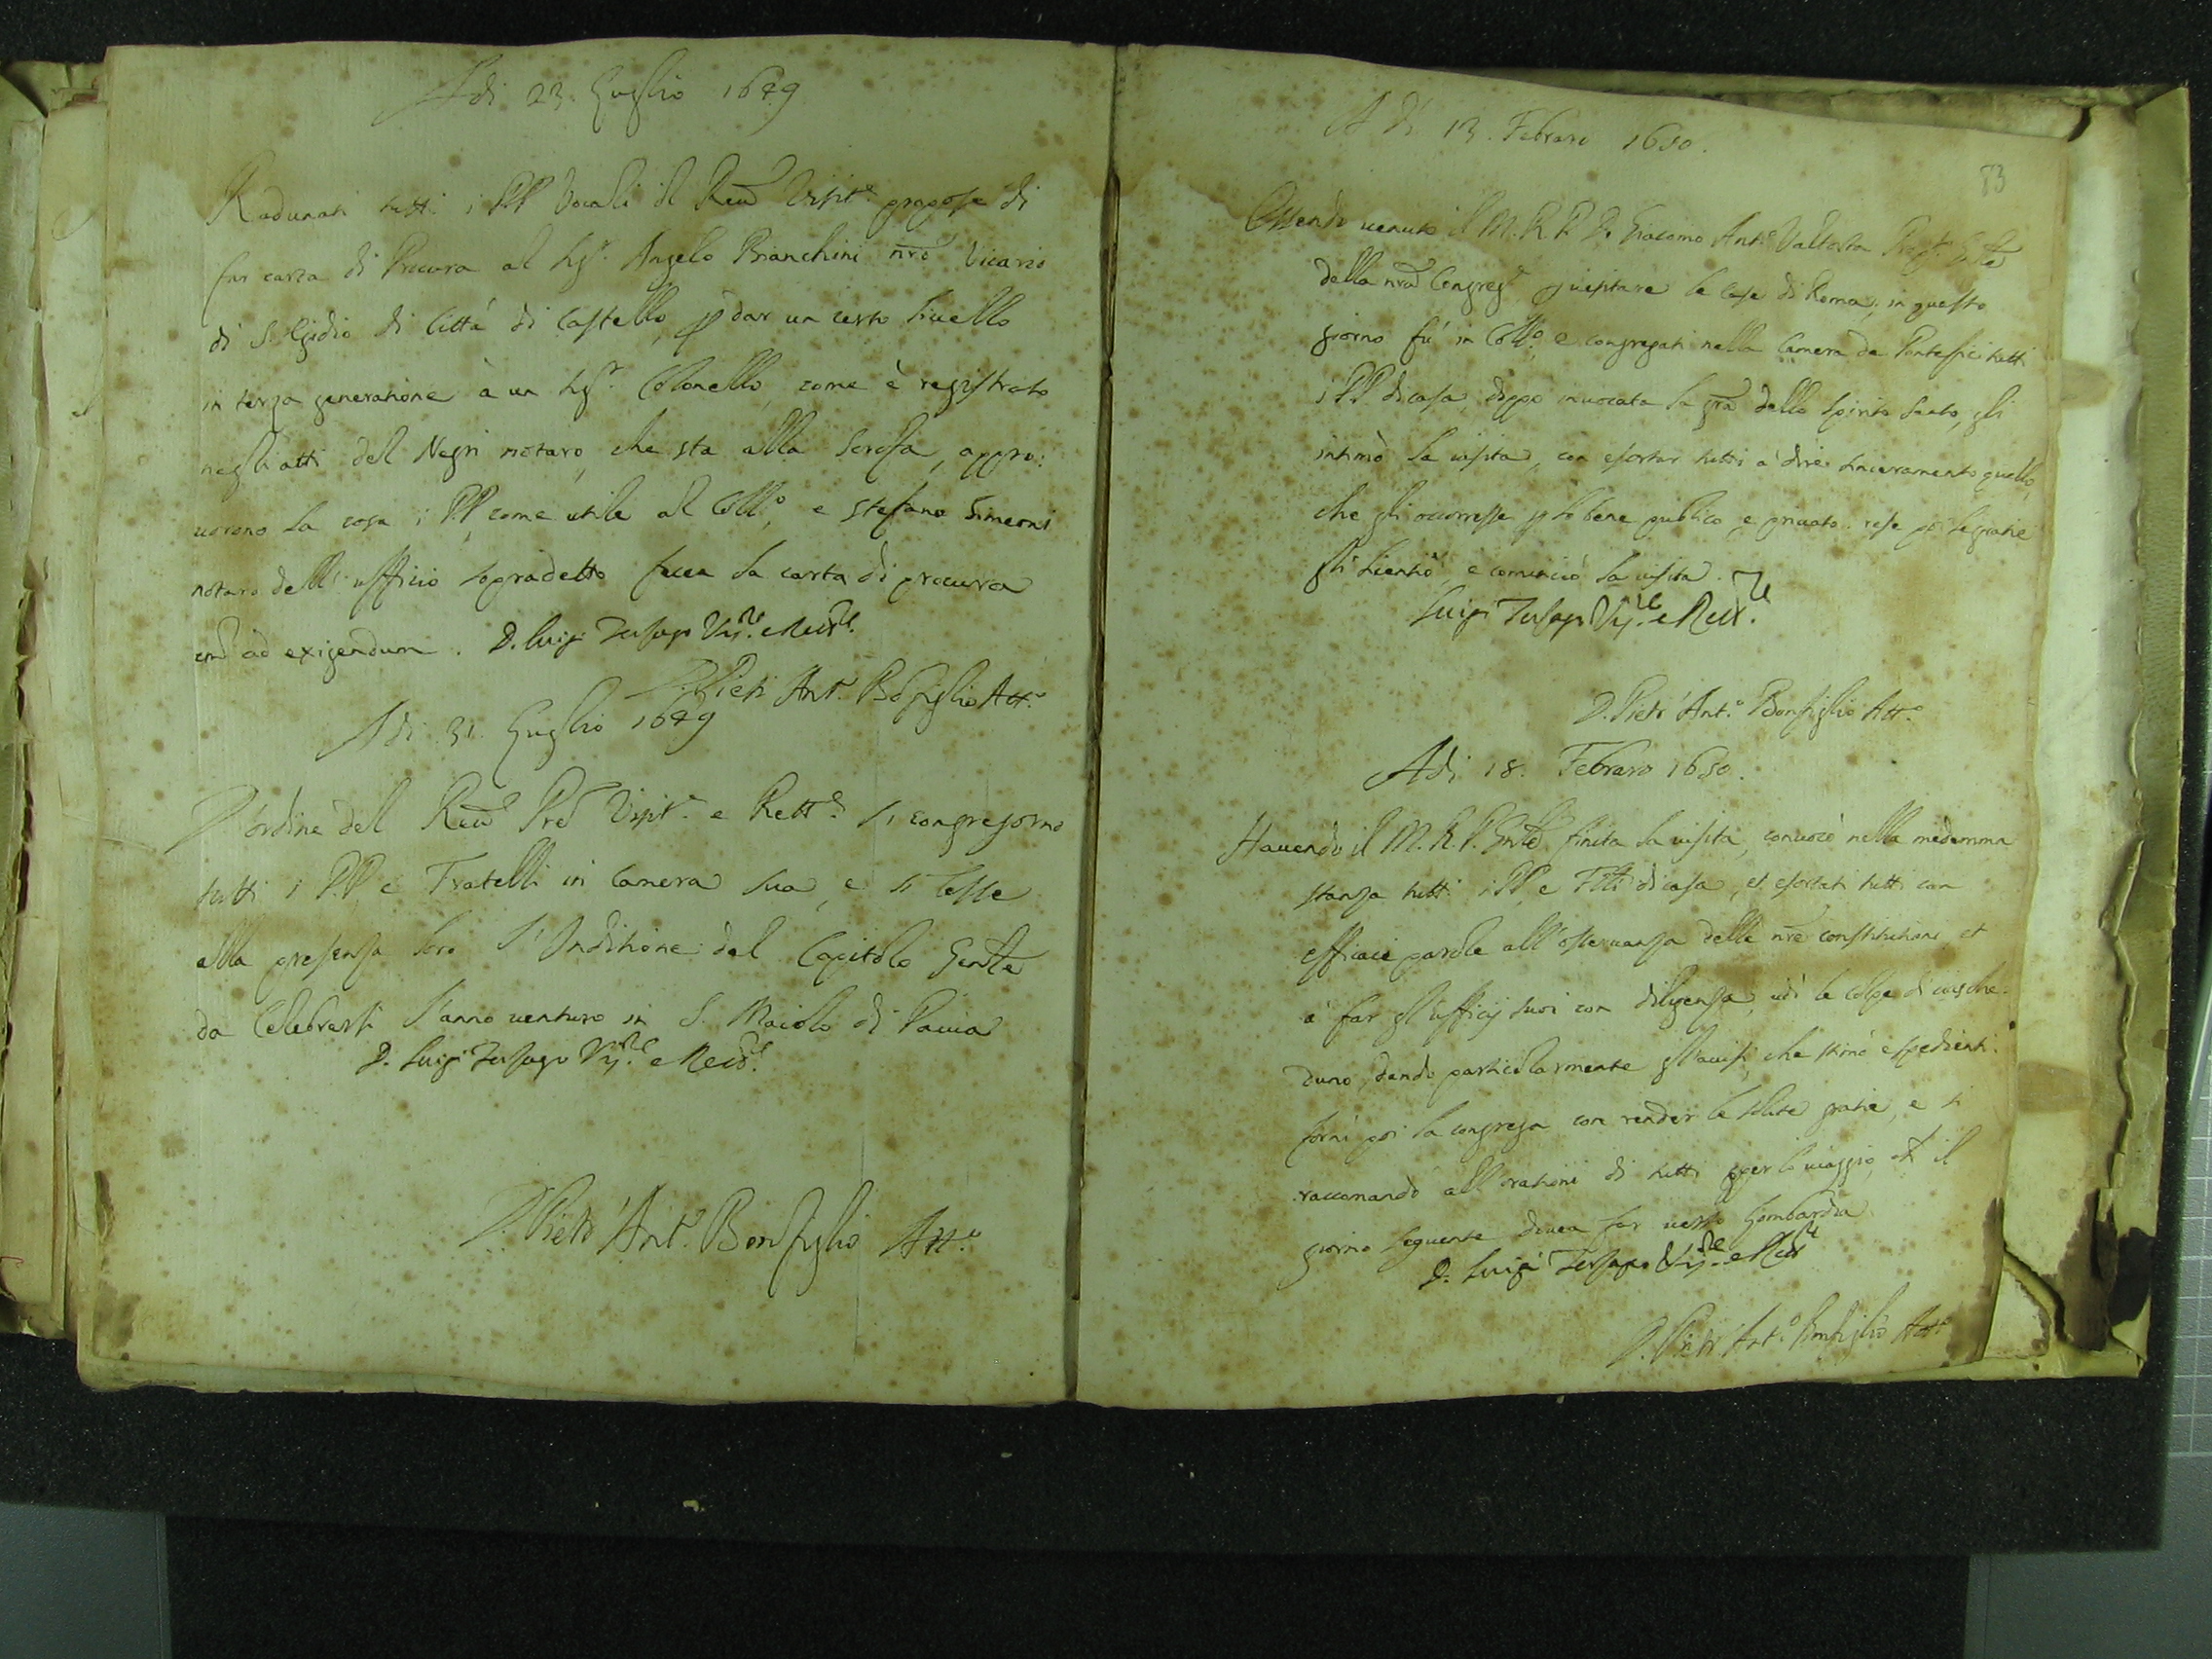 Adi 23. Guglio 1649
Radunati tutti i PP Vocali il Reudo Visitre propose di
far carta di Procura al Sigr. Angelo Bianchini nro Vicario
di S. Egidio di Città di Castello, p dar un certo liuello
in terza generatione à un Sigr. Colonello, come è registrato
negli atti del Negri notaro, che sta alla Scrofa, appro:
uorono la cosa i PP come utile al Collo, e Stefano Simeoni
notaro dell' ufficio sopradetto fecea la carta di procura
ad exigendum. D. Luigi Visre e Rettre.
D. Pietr' Anto. Bofiglio Atto.
Adi 31. Guglio 1649
D'ordine del Reudo Pre Visitre e Rettre si congregorno
tutti i PP, e Fratelli in Camera sua, e si lesse
alla presenza loro l'Inditione del Capitolo Genle
da Celebrarsi l'anno uenturo in S. Maiolo di Pauia
D. Luigi Visre e Rettre.
D. Pietr' Anto. Bonfiglio Atto.
A di 13. Febraro 1650.
83
Essendo uenuto il M. R. P. D. Giacomo Anto Valtorta Prepto Genle
della nra Congregne p uisitare le case di Roma, in questo
giorno fù in Collo, e congregati nella Camera da Pontefici tutti
i PP di casa, doppo inuocata la gra dello Spirito Santo, gli
intimò la uisita, con esortar tutti a' dire sinceramente quello,
che gli occorresse p lo bene publico e priuato. rese poi le gratie
gli licentiò, e cominciò la uisita.
Luigi Visre e Rettre.
D. Pietr' Anto. Bonfiglio Atto.
Adi 18. Febraro 1650.
Hauendo il M. R. P. Genle finita la uisita, conuocò nella medemma
stanza tutti i PP, e Flli di casa, et esortati tutti con
efficaci parole all' osseruanza delle nre constitutioni et
à far gl'ufficij suoi con diligenza, udì le colpe di ciasche-
duno, dando particolarmente gl'auisi, che stimò espedienti.
fornì poi la congrega con render le solite gratie, e si
raccomandò all' orationi di tutti per lo uiaggio, che il
giorno seguente douea far uerso Lombardia
D. Luigi Visre e Rettre
D. Pietr' Anto. Bonfiglio Atto